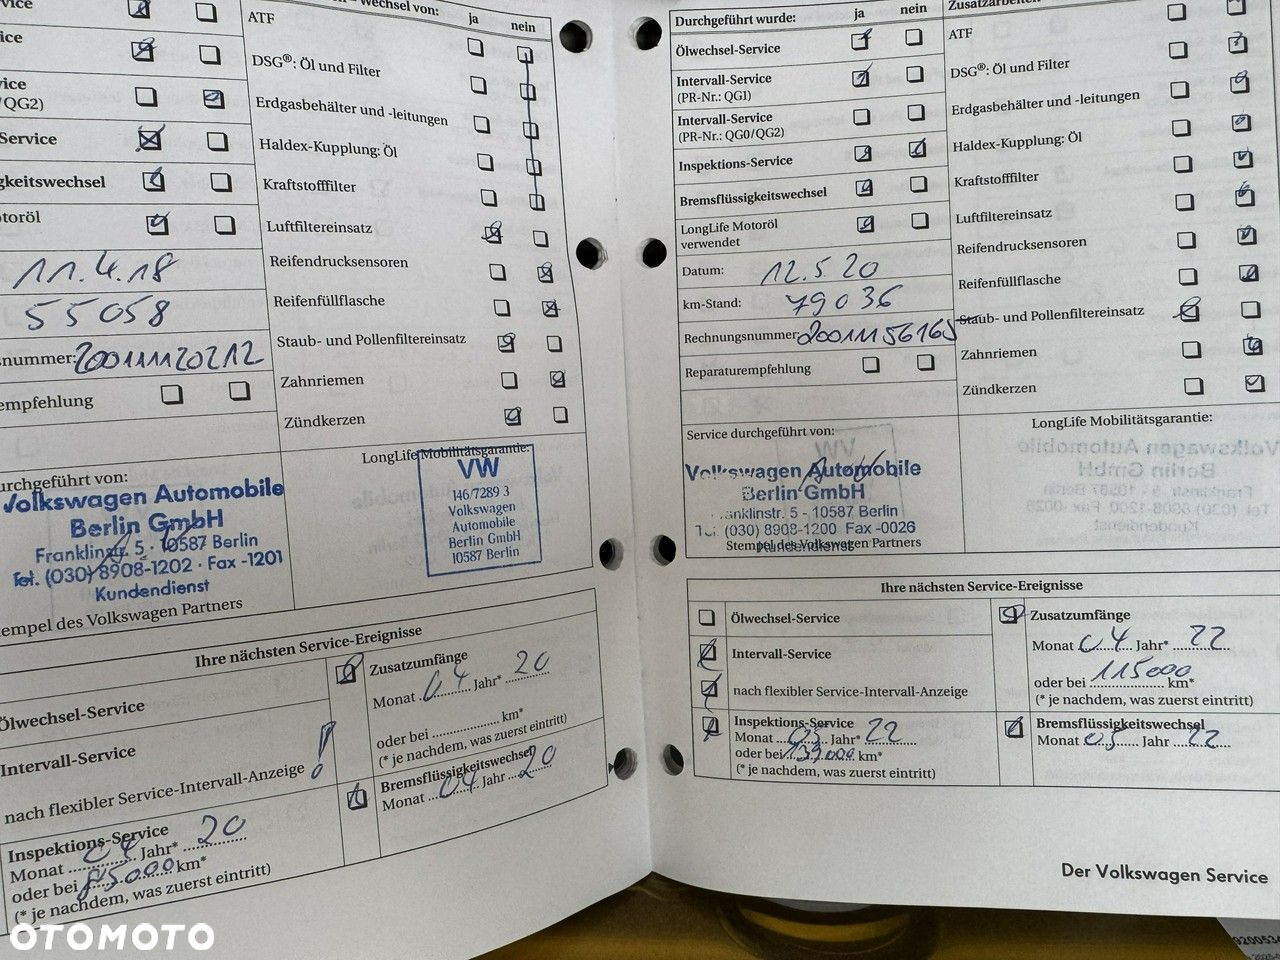 Wechsel von:
ja
nein
ATF
DSG®: Öl und Filter
Erdgasbehälter und -leitungen
Haldex-Kupplung: Öl
Kraftstofffilter
Luftfiltereinsatz
Reifendrucksensoren
Reifenfüllflasche
Staub- und Pollenfiltereinsatz
Zahnriemen
Zündkerzen
/QG2)
Service
gkeitswechsel
otoröl
11.4.18
55058
snummer: 200111120212
empfehlung
urchgeführt von:
Volkswagen Automobile
Berlin GmbH
Franklinstr. 5 · 10587 Berlin
Tel. (030) 8908-1202 · Fax -1201
Kundendienst
tempel des Volkswagen Partners
LongLife Mobilitätsgarantie:
VW
146/7289 3
Volkswagen
Automobile
Berlin GmbH
10587 Berlin
Ihre nächsten Service-Ereignisse
Ölwechsel-Service
Intervall-Service
nach flexibler Service-Intervall-Anzeige
Inspektions-Service
Monat 04 Jahr* 20
oder bei 85000 km*
(* je nachdem, was zuerst eintritt)
Zusatzumfänge
Monat 04 Jahr* 20
oder bei km*
(* je nachdem, was zuerst eintritt)
Bremsflüssigkeitswechsel
Monat 04 Jahr 20
Durchgeführt wurde:
ja
nein
Ölwechsel-Service
Intervall-Service
(PR-Nr.: QG1)
Intervall-Service
(PR-Nr.: QG0/QG2)
Inspektions-Service
Bremsflüssigkeitswechsel
LongLife Motoröl
verwendet
Datum: 12.5.20
km-Stand: 79036
Rechnungsnummer: 20011156165
Reparaturempfehlung
Zusatzarbeiten
ATF
DSG®: Öl und Filter
Erdgasbehälter und -leitungen
Haldex-Kupplung: Öl
Kraftstofffilter
Luftfiltereinsatz
Reifendrucksensoren
Reifenfüllflasche
Staub- und Pollenfiltereinsatz
Zahnriemen
Zündkerzen
Service durchgeführt von:
Volkswagen Automobile
Berlin GmbH
Franklinstr. 5 - 10587 Berlin
Tel. (030) 8908-1200 Fax -0026
Kundendienst
Stempel des Volkswagen Partners
LongLife Mobilitätsgarantie:
Ihre nächsten Service-Ereignisse
Ölwechsel-Service
Intervall-Service
nach flexibler Service-Intervall-Anzeige
Inspektions-Service
Monat 05 Jahr* 22
oder bei km*
(* je nachdem, was zuerst eintritt)
Zusatzumfänge
Monat 04 Jahr* 22
oder bei 115000 km*
(* je nachdem, was zuerst eintritt)
Bremsflüssigkeitswechsel
Monat 05 Jahr 22
Der Volkswagen Service
OTOMOTO